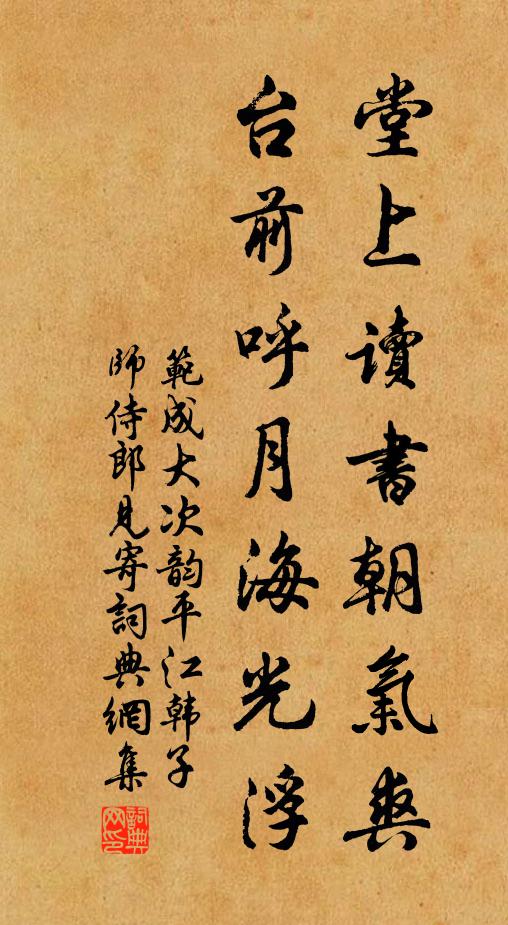 堂上讀書朝氣爽
台前呼月海光浮
範成大次韵平江韩子
師侍郎見寄詞典網集
詞典网印